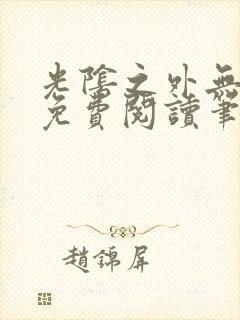 光陰之外無
免費閱讀筆
趙錦屏